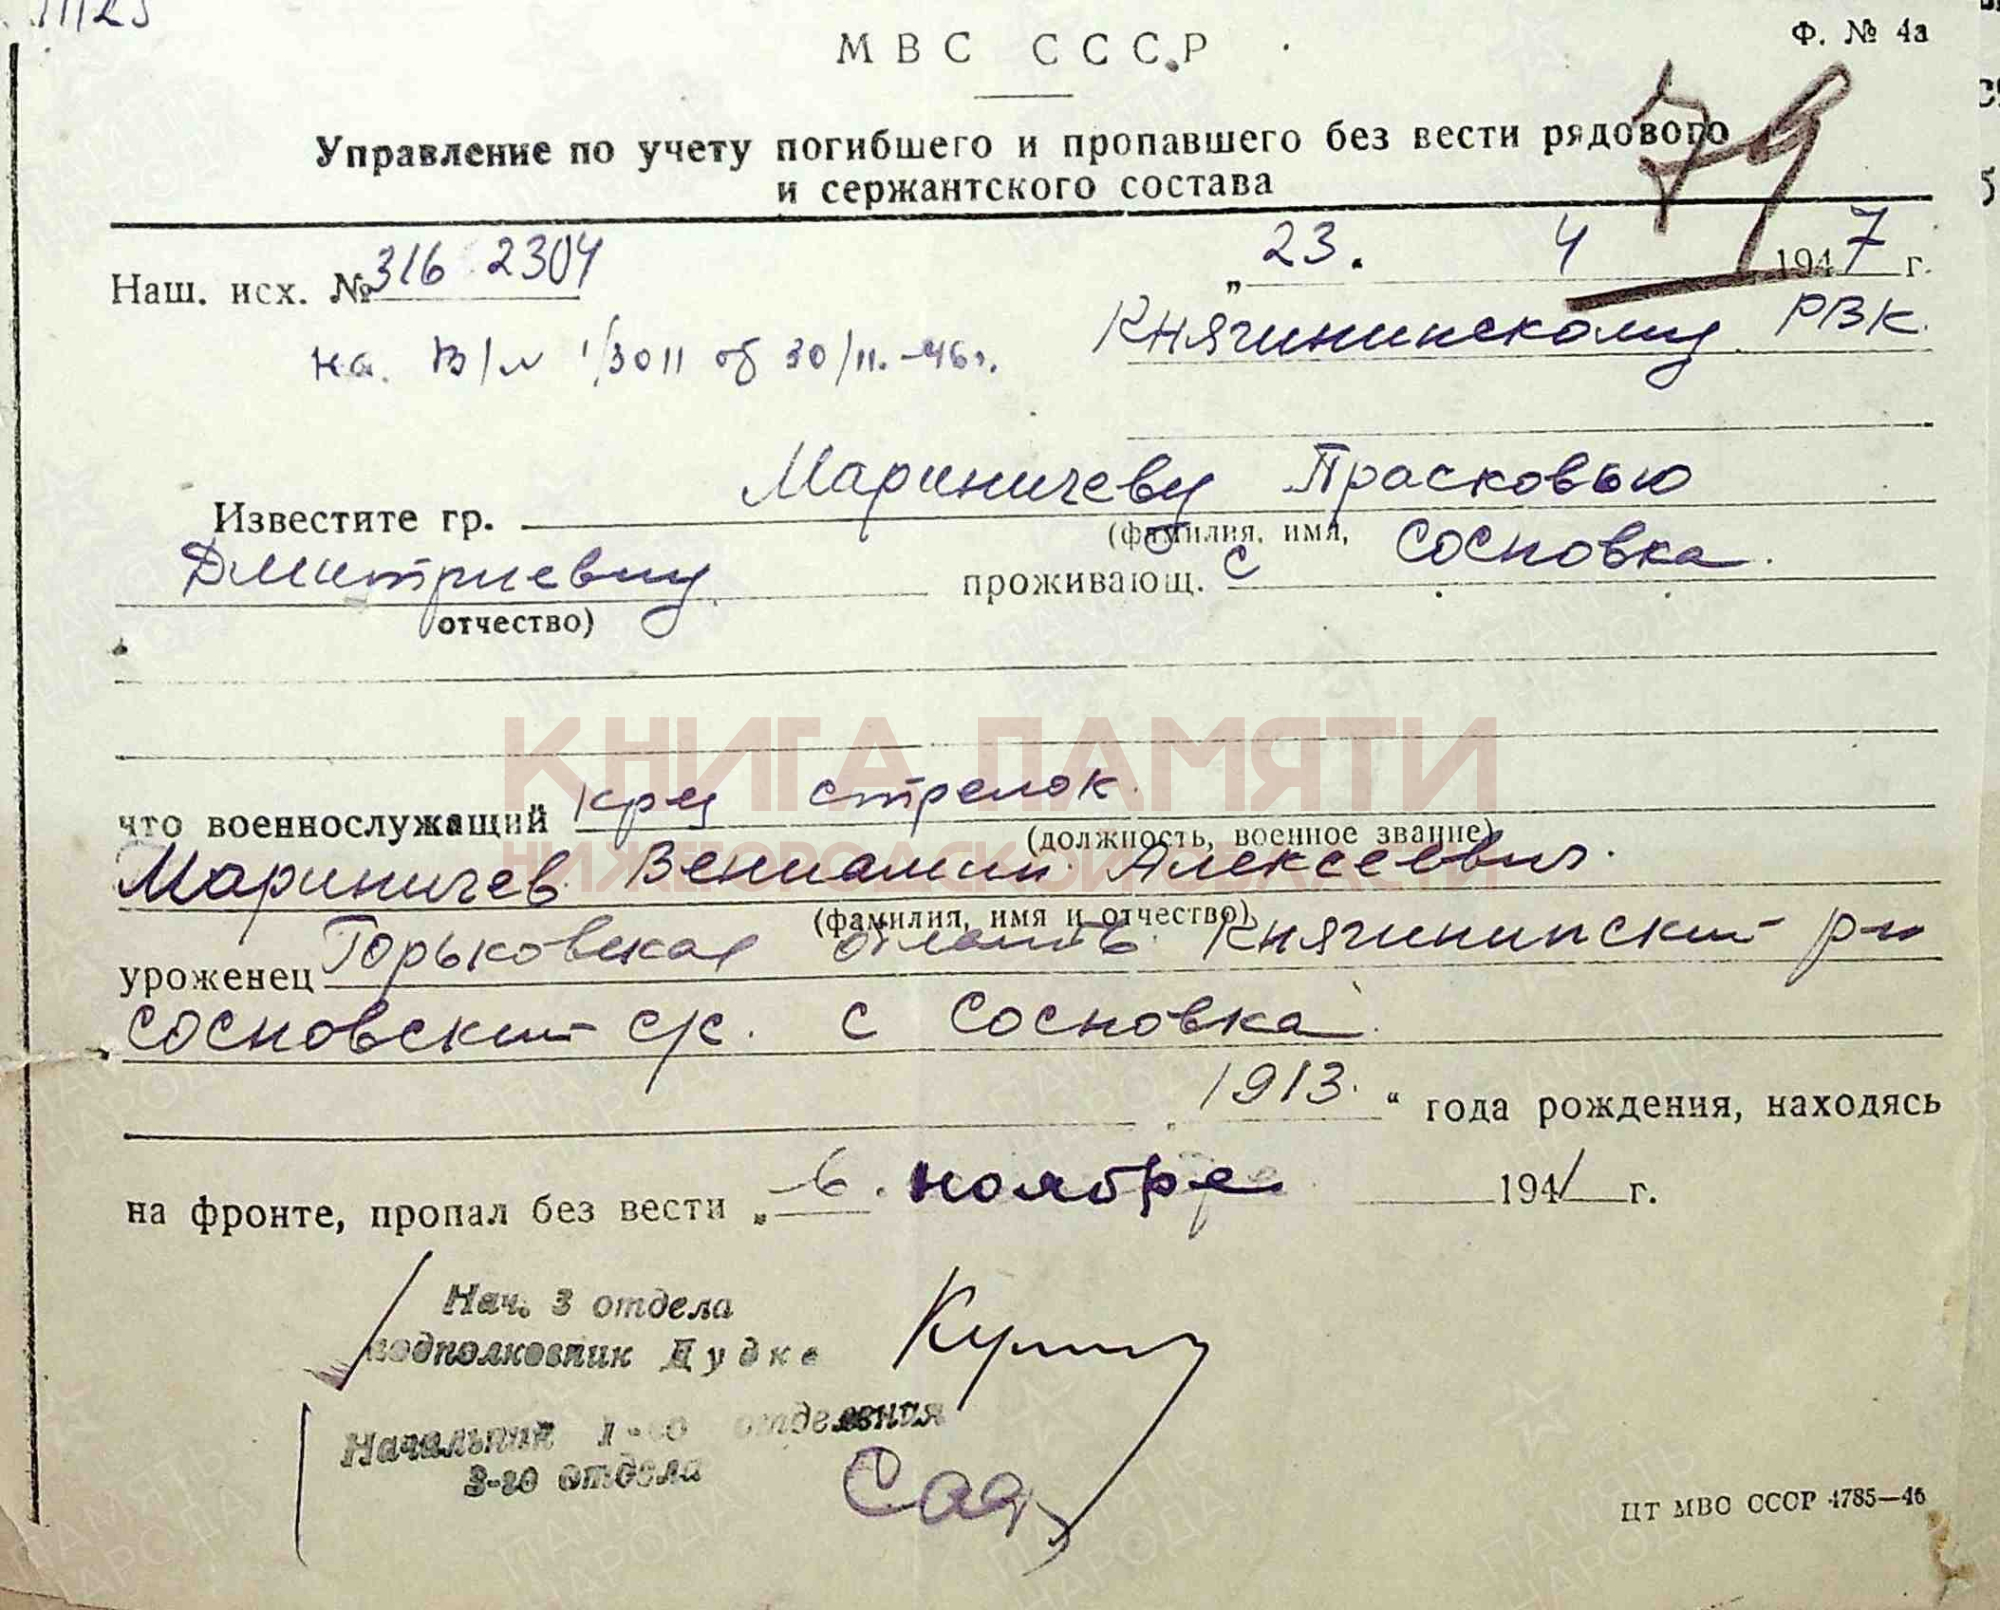 МВС СССР
Ф. № 4а
79
Управление по учету погибшего и пропавшего без вести рядового
и сержантского состава
Наш. исх. № 316 2304
„23. 4 1947 г.
на В/№ 1/3011 об 30/11.-46г.
Княгининскому РВК.
Известите гр. Мариничеву Прасковью
(фамилия, имя,
Дмитриевну проживающ. с Сосновка.
отчество)
КНИГА ПАМЯТИ
что военнослужащий кр-ц стрелок.
(должность, военное звание)
НИЖЕГОРОДСКОЙ ОБЛАСТИ
Мариничев Вениамин Алексеевич.
(фамилия, имя и отчество)
уроженец Горьковская область Княгининский р-н
Сосновский с/с. с Сосновка.
1913. “ года рождения, находясь
на фронте, пропал без вести „6. ноябре 1941 г.
Нач. 3 отдела
подполковник Дудке
Начальник 1-го отделения
3-го отдела
ЦТ МВС СССР 4785—46